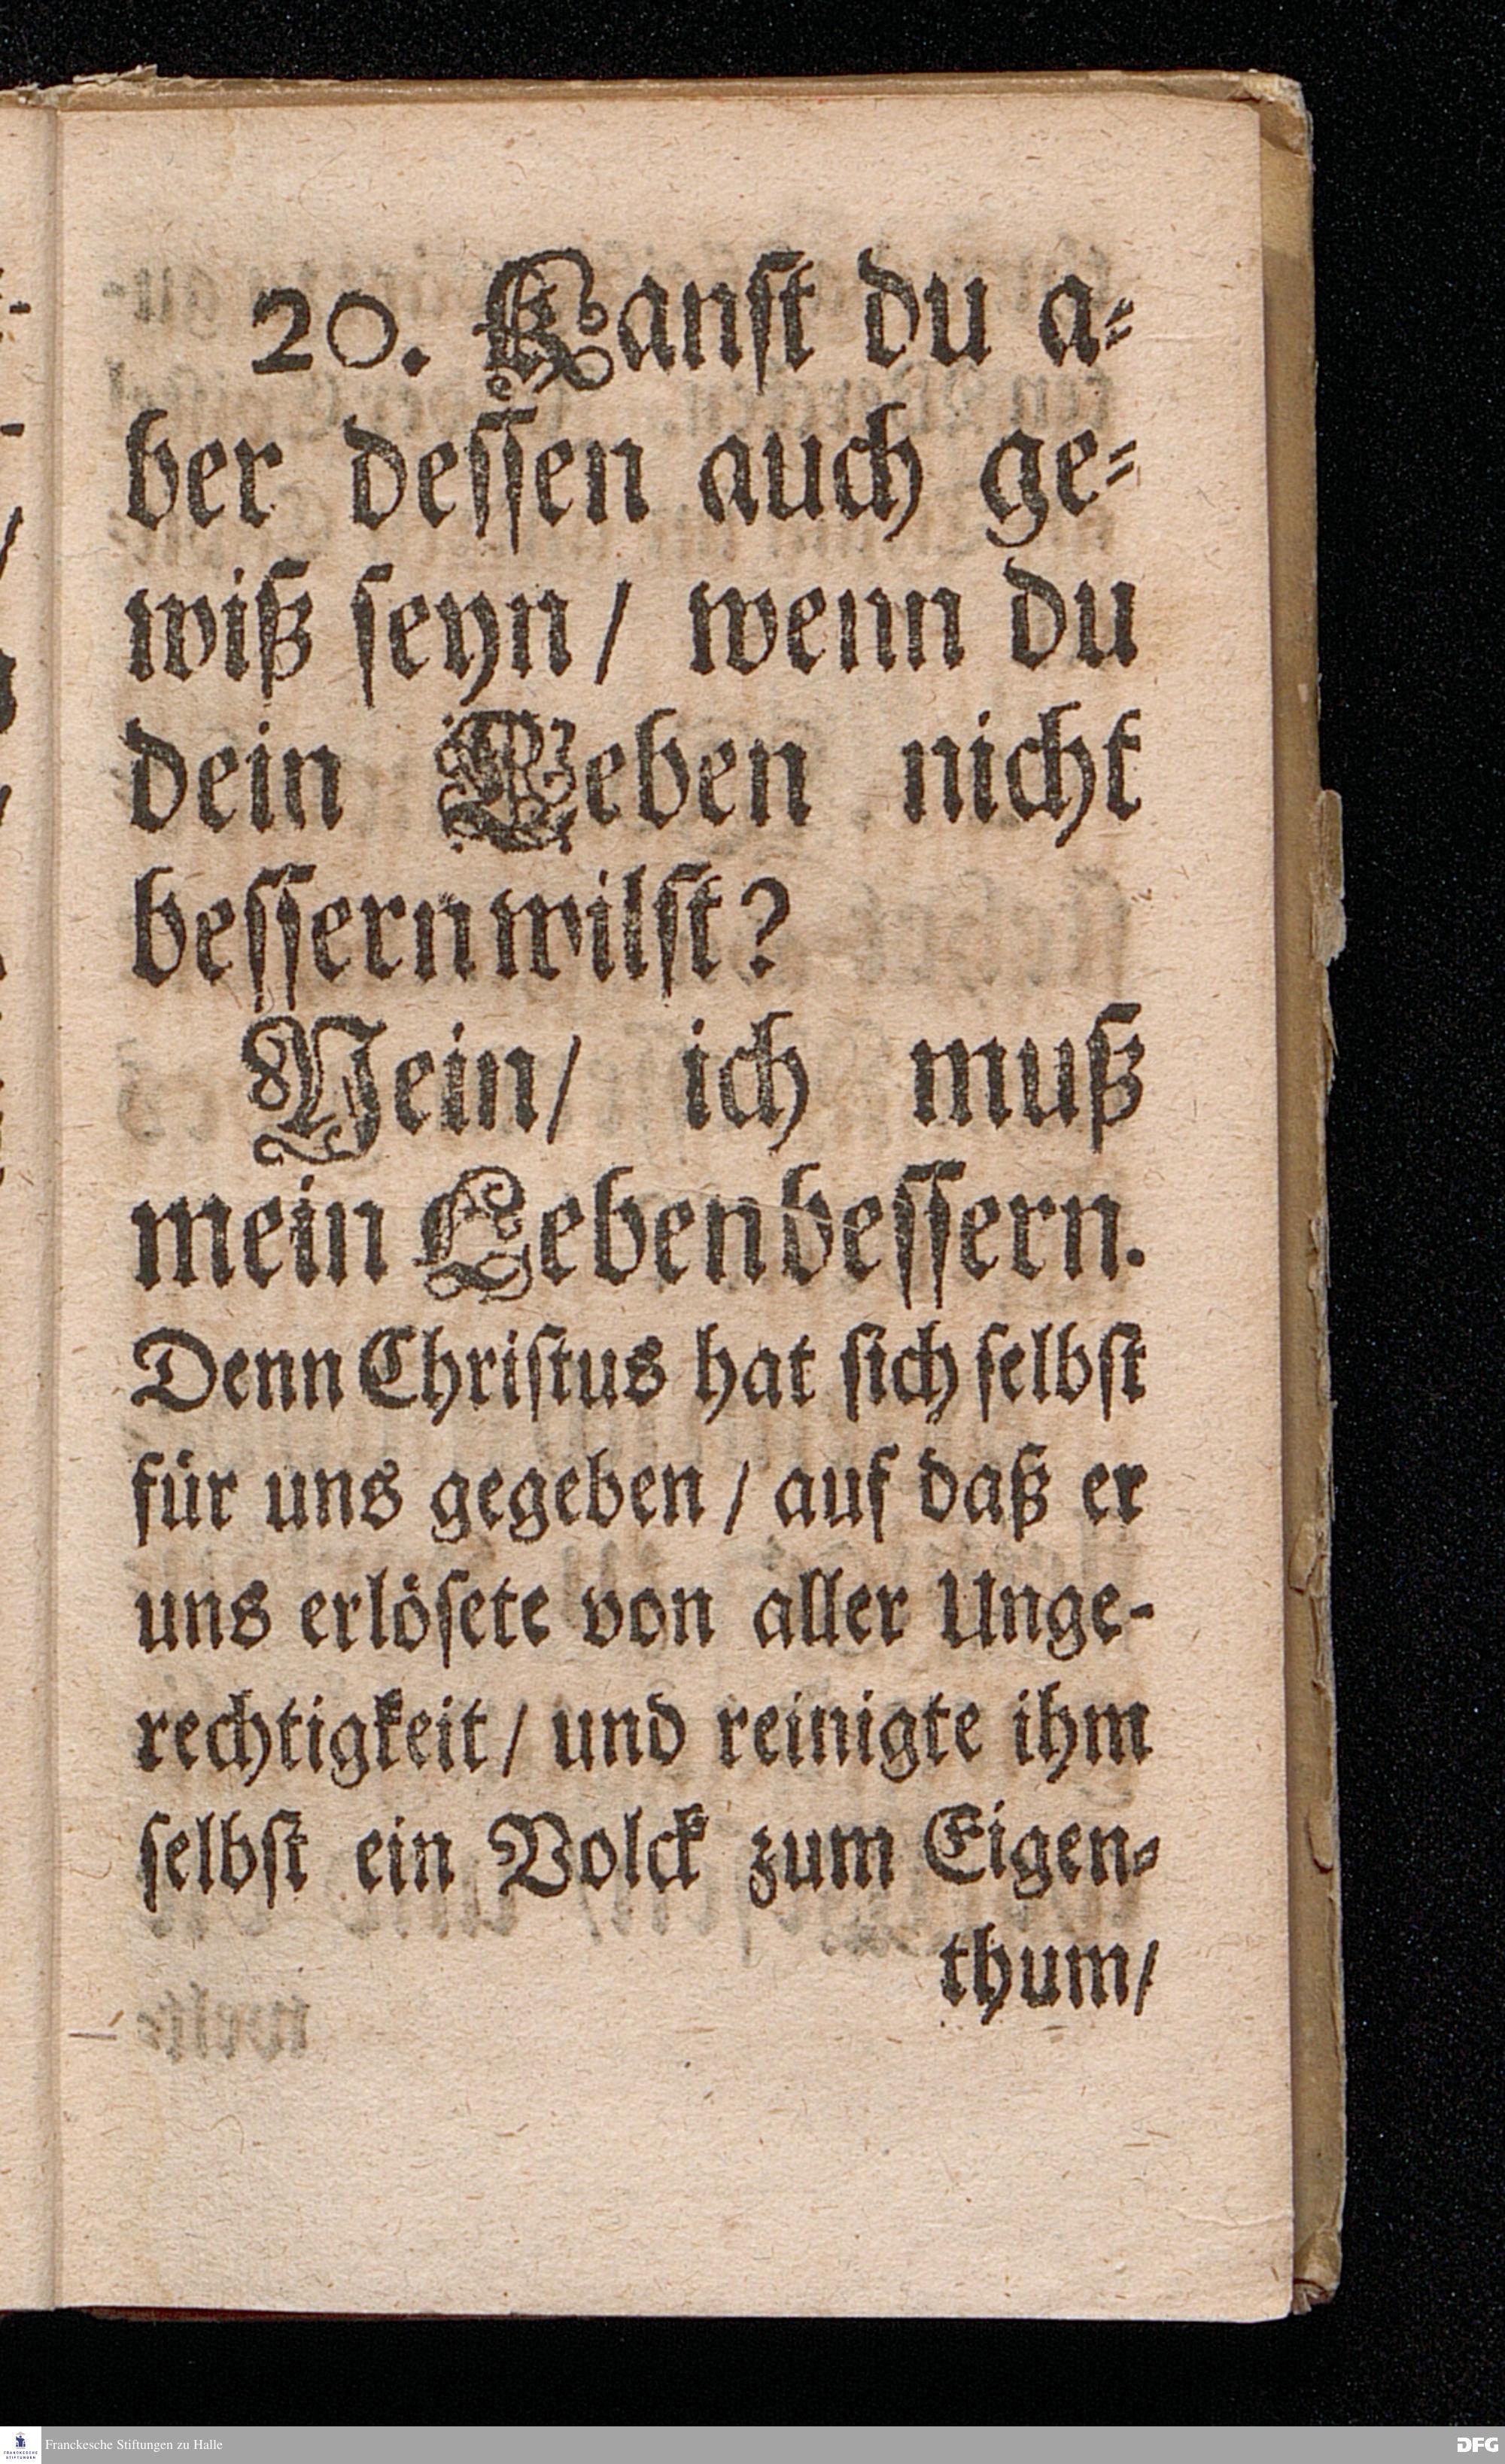 20. Kanſt du a⸗
ber deſſen auch ge⸗
wiß ſeyn/ wenn du
dein Leben nicht
beſſern wilſt?
Nein/ ich muß
mein Leben beſſern.
Denn Chriſtus hat ſich ſelbſt
für uns gegeben/ auf daß er
uns erlöſete von aller Unge-
rechtigkeit/ und reinigte ihm
ſelbſt ein Volck zum Eigen⸗
thum/
Franckesche Stiftungen zu Halle
DFG